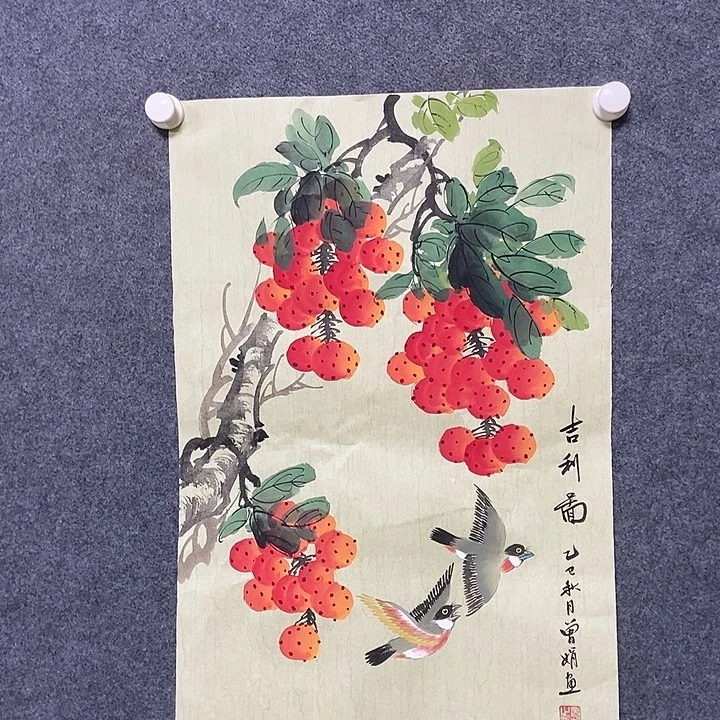 吉利啚
乙巳秋月曾娟画